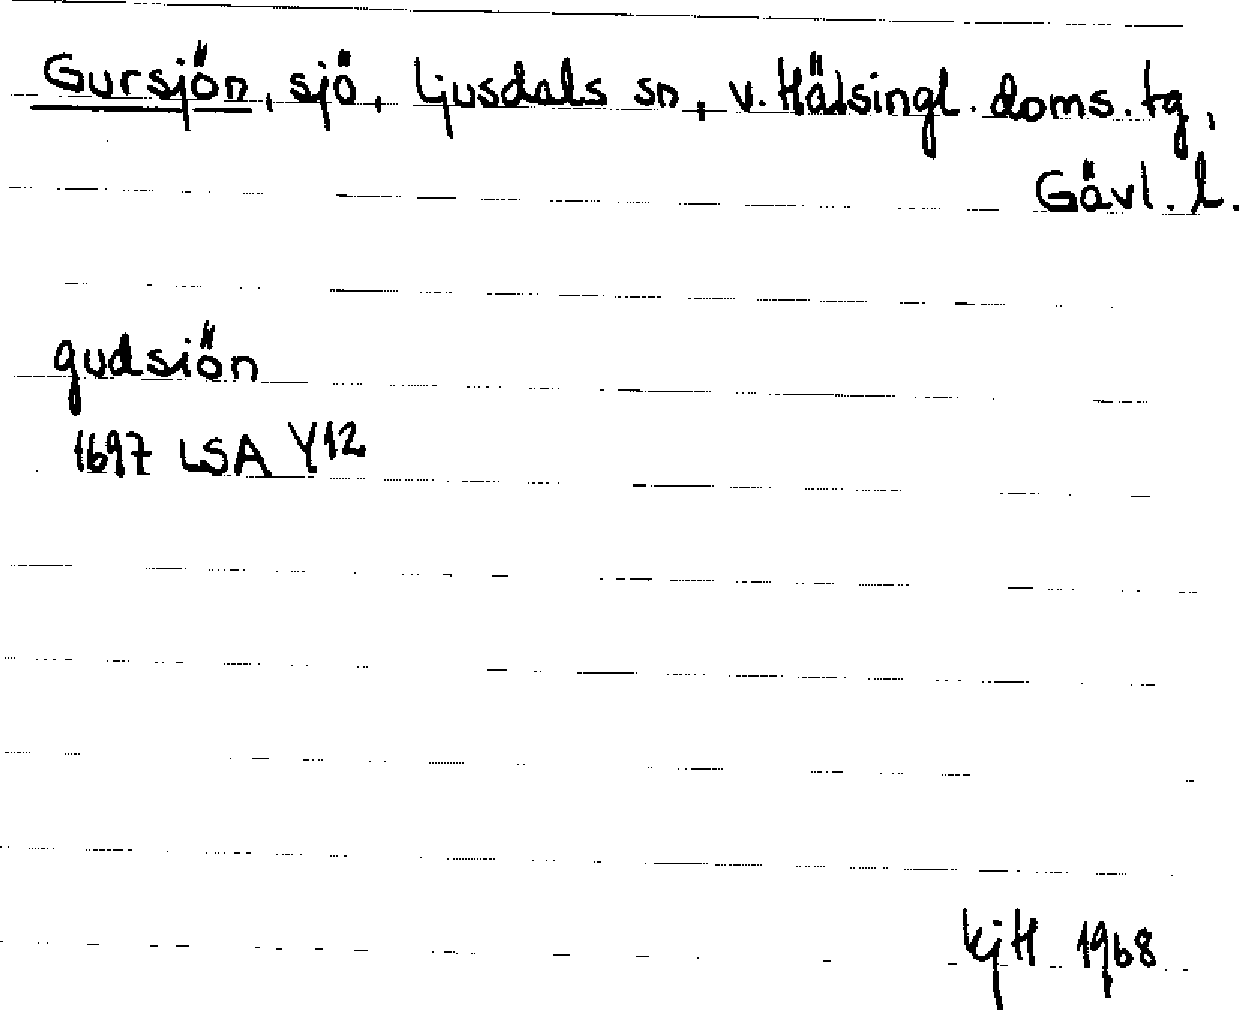 Gursjön, sjö, Ljusdals sn, v. Hälsingl. doms. tg,
Gävl. l.
gudsiön
1697 LSA Y12
kjH 1968